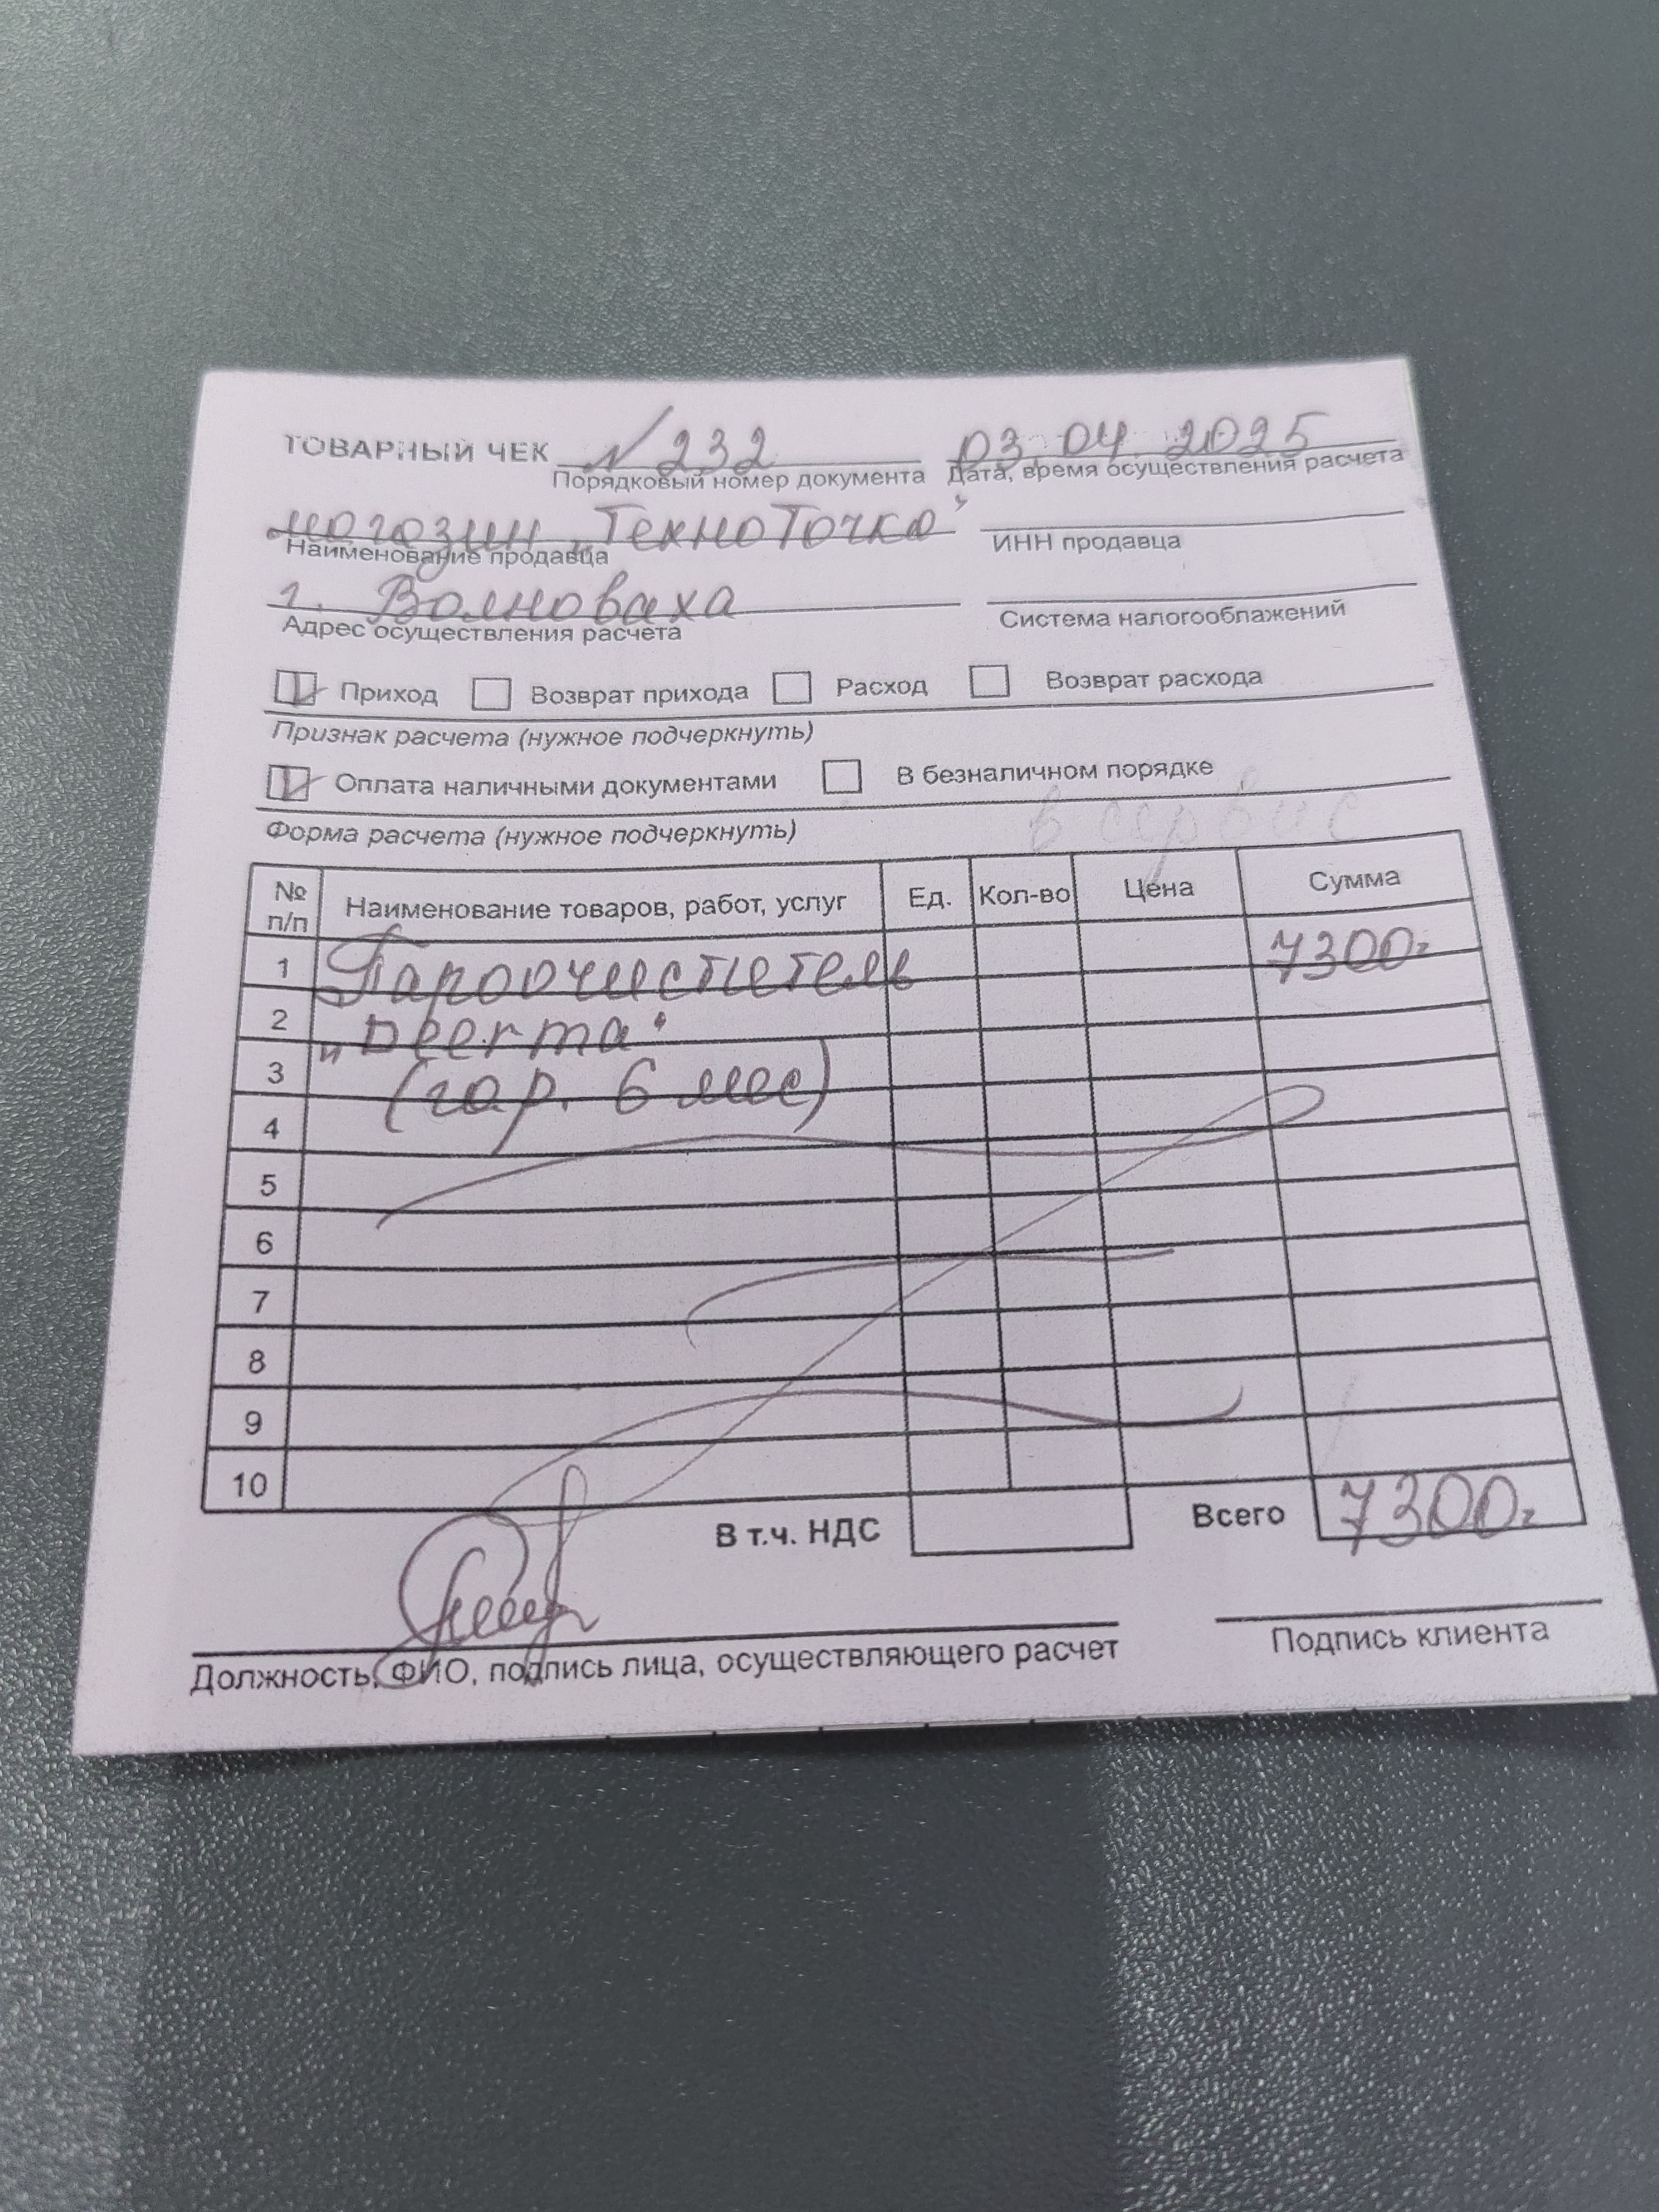 ТОВАРНЫЙ ЧЕК № 232 03.04.2025
Порядковый номер документа Дата, время осуществления расчета
магазин „ТехноТочка"
Наименование продавца ИНН продавца
г. Волноваха
Адрес осуществления расчета Система налогооблажений
Приход Возврат прихода Расход Возврат расхода
Признак расчета (нужное подчеркнуть)
Оплата наличными документами В безналичном порядке
Форма расчета (нужное подчеркнуть) в сервис
№ п/п Наименование товаров, работ, услуг Ед. Кол-во Цена Сумма
1 Пароочиститель 7300=
2 „Deerma"
3 (гар. 6 мес)
4
5
6
7
8
9
10
В т.ч. НДС Всего 7300=
Должность, ФИО, подпись лица, осуществляющего расчет Подпись клиента